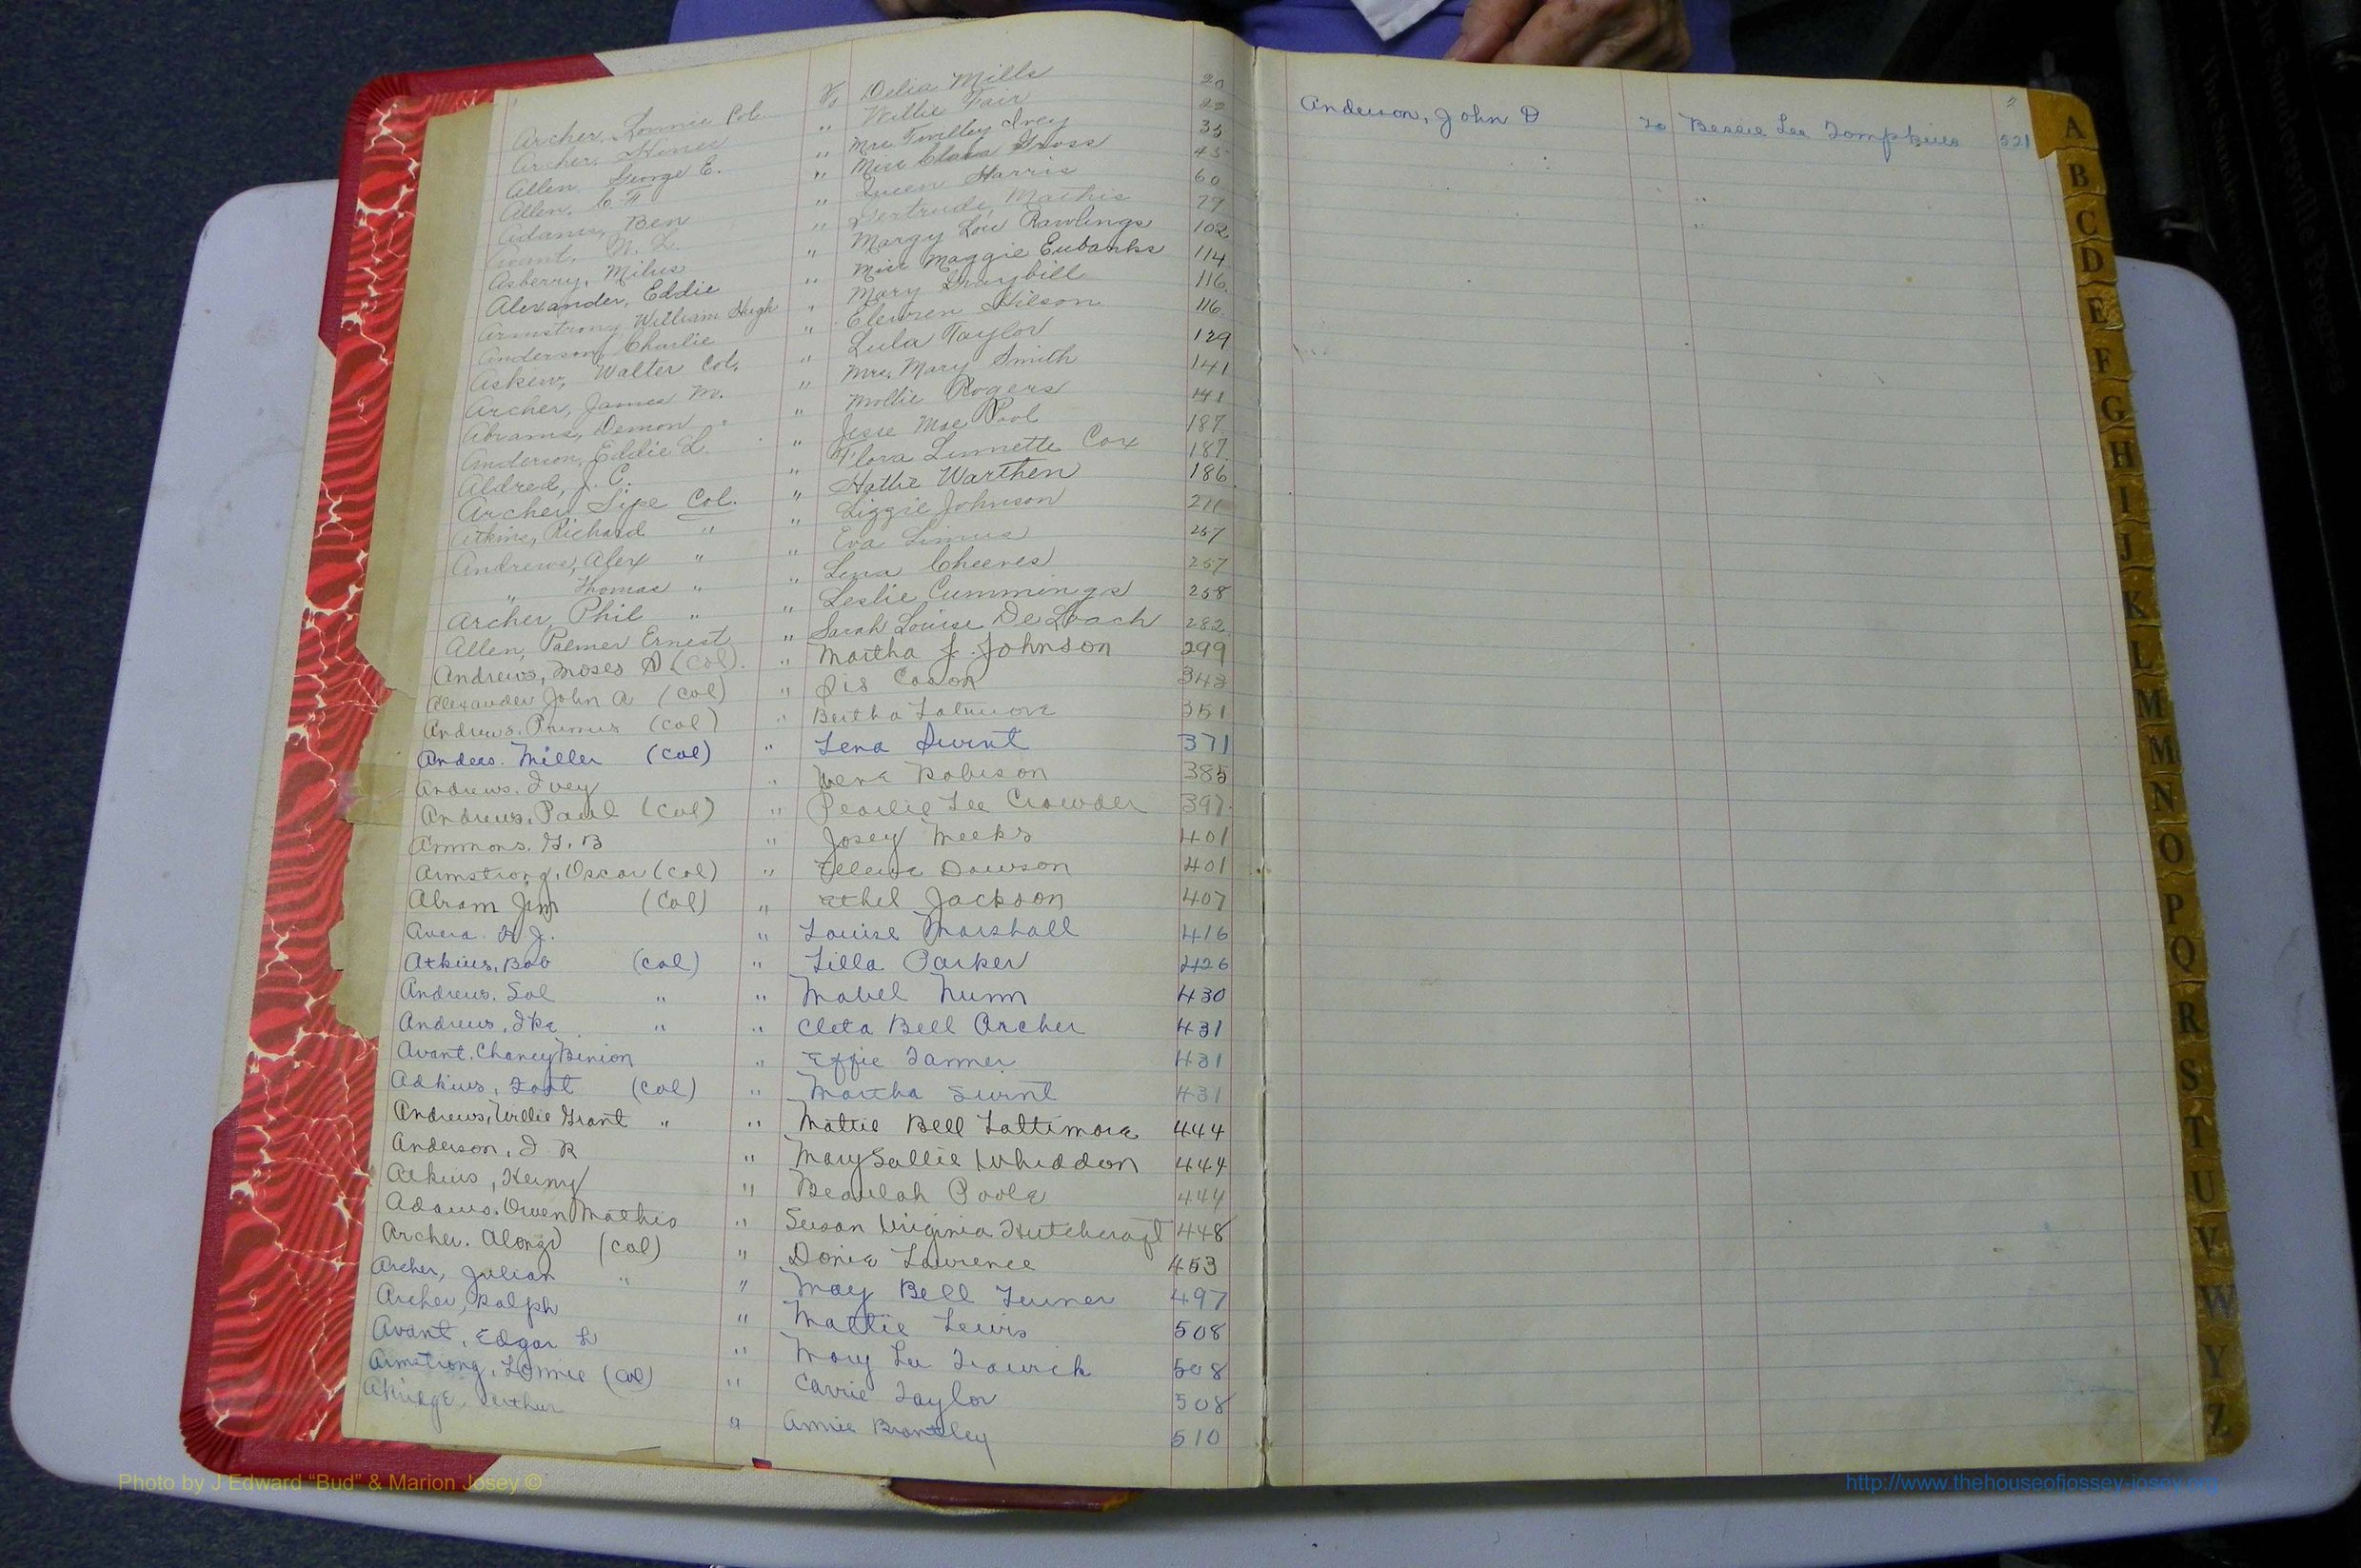 Archer, Lonnie Col. To Delia Mills 20
Archer, " Willie Fair 22
Allen, George E. " Mrs. Twilley Ivey 35
Allen, C. F. " Miss Clara Gross 45
Adams, Ben " Queen Harris 60
Avant, " Gertrude Mathis 77
Asberry, Milus " Margy Lou Rawlings 102
Alexander, Eddie " Miss Maggie Eubanks 114
Armstrong William Hugh " Mary Graybill 116
Anderson, Charlie " Hilson 116
Askew, Walter Col. " Lula Taylor 129
Archer, James M. " Mrs. Mary Smith 141
Abrams, Demon " Mollie Rogers 141
Anderson, Eddie L. " Jesse Mae Pool 187
Aldred, J. C. " Flora Linnette Cox 187
Archer, Sipe Col. " Hattie Warthen 186
Atkins, Richard " " Lizzie Johnson 211
Andrews, Alex " " Eva 257
" Thomas " " Lena Cheeves 257
Archer, Phil " " Leslie Cummings 258
Allen, Palmer Ernest " Sarah Louise DeLoach 282
Andrews, Moses (Col). " Martha J. Johnson 299
Alexander John A (Col) " Sis Cason 343
Andrews, Primus (Col) " Bertha 351
Miller (Col) " Lena Swint 371
Andrews, Ivey " Robison 385
Andrews, Paul (Col) " Pearlie Lee Crowder 397
Ammons, G. B " Josey Meeks 401
Armstrong, Oscar (Col) " Dawson 401
Abram Jim (Col) " Ethel Jackson 407
" Louise Marshall 416
Atkins, Bob (Col) " Lilla Parker 426
Andrews, Sol " " Mabel Nunn 430
Andrews, Ike " " Cleta Bell Archer 431
Avant, Chaney Binion " Effie Tanner 431
Adkins, (Col) " Martha Swint 431
Andrews, Willie Grant " " Mattie Bell Lattimore 444
Anderson, I R " Mary Sallie Whiddon 444
Atkins, " Beaulah Poole 444
Adams, Owen Mathis " Susan Virginia Hutchcraft 448
Archer, Alonzo (Col) " Donie Lawrence 453
Archer, Julian " " May Bell Turner 497
Archer, Ralph " Mattie Lewis 508
Avant, Edgar L " Mary Lee Trawick 508
Armstrong, Lonnie (Col) " Carrie Taylor 508
Akridge, Arthur " Annie Brantley 510
2
Anderson, John D To Bessie Lee Tompkins 521
"
"
A
B
C
D
E
F
G
H
I
J
K
L
M
Mc
N
O
P
Q
R
S
T
U
V
W
Y
Z
Photo by J Edward “Bud” & Marion Josey ©
http://www.thehouseofjossey-josey.org